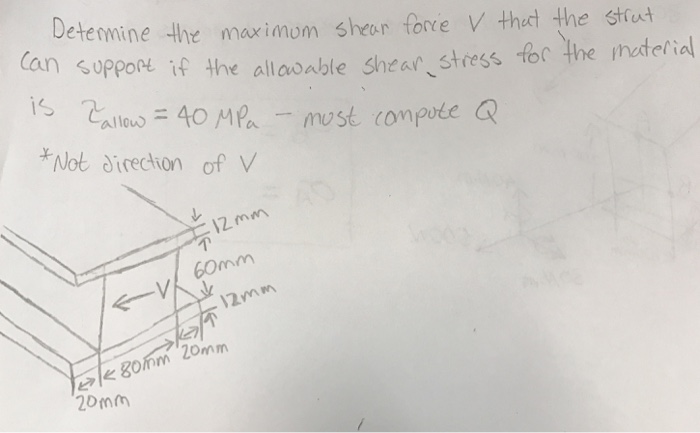 Determine the maximum shear force V that the strut
can support if the allowable shear stress for the material
is τallow = 40 MPa - must compute Q
*Not direction of V
12mm
60mm
V
12mm
20mm
80mm
20mm